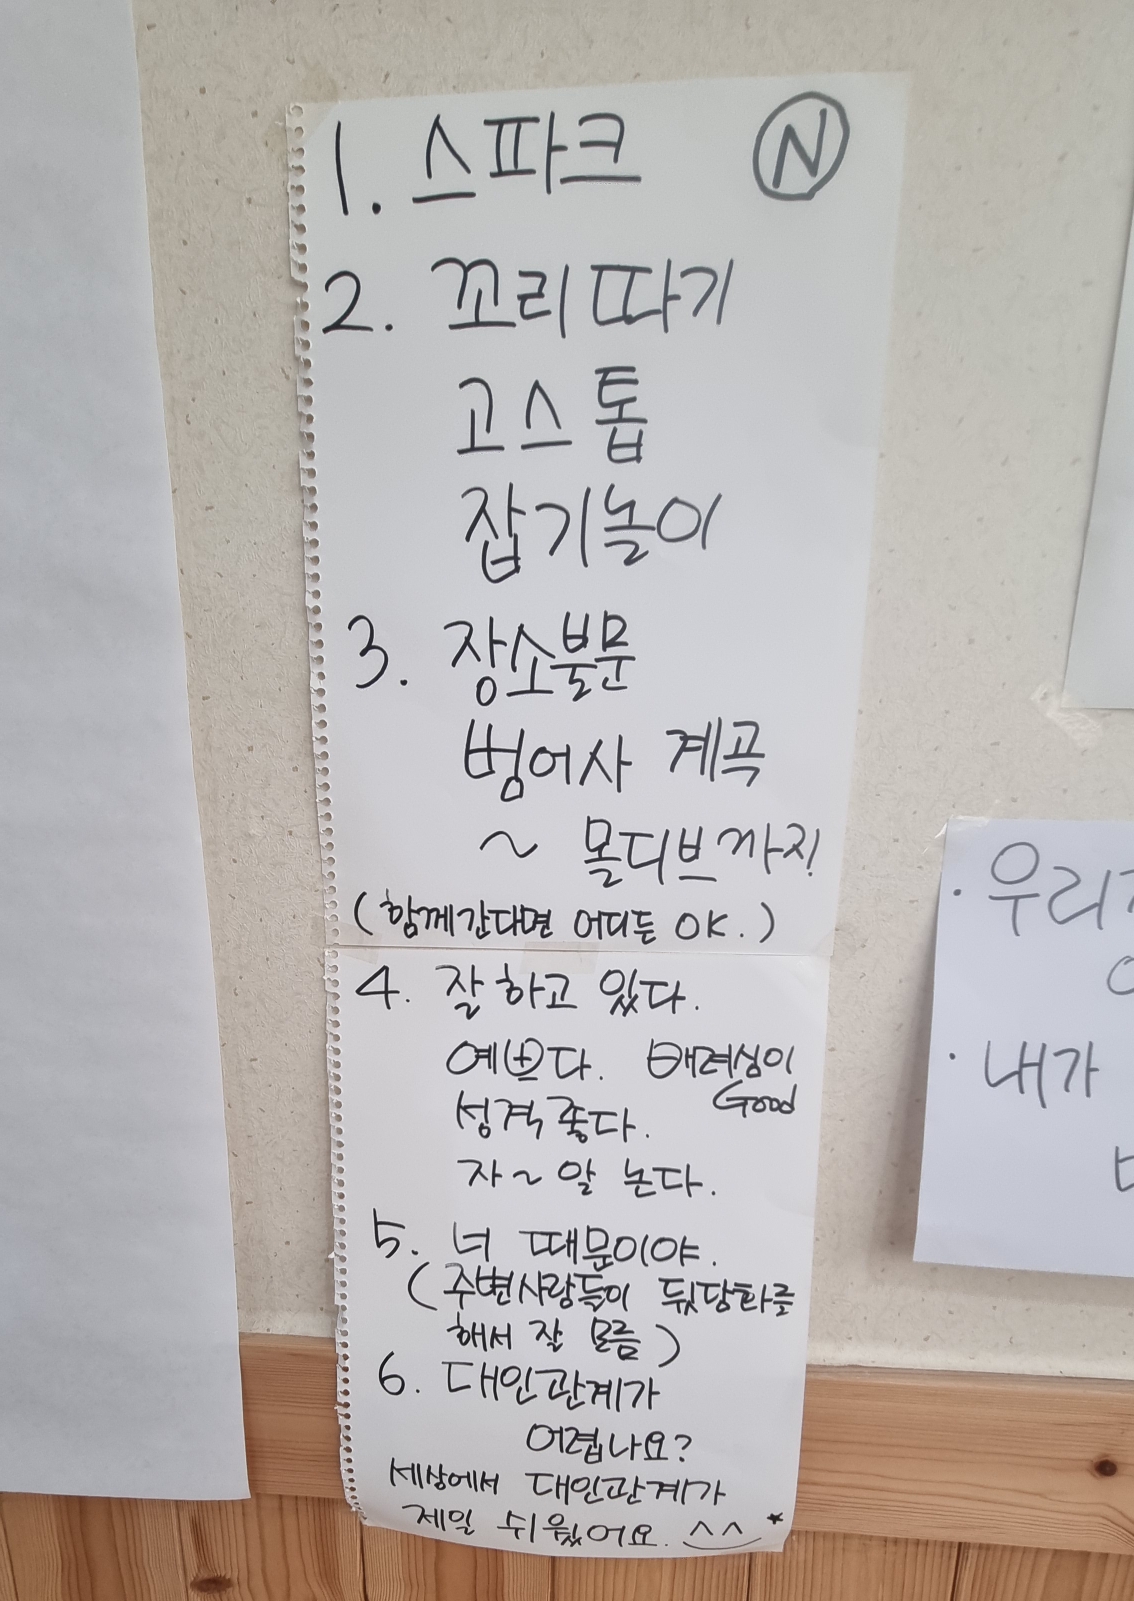 1. 스파크 Ⓝ
2. 꼬리따기
고스톱
잡기놀이
3. 장소불문
벙어사 계곡
~ 몰디브까지!
(함께간다면 어디든 OK.)
4. 잘하고 있다.
예쁘다. 배려심이
Good
성격좋다.
자~알 논다.
5. 너 때문이야.
(주변사람들이 뒷담화를
해서 잘 모름)
6. 대인관계가
어렵나요?
세상에서 대인관계가
제일 쉬웠어요. ^^
· 우리
· 내가